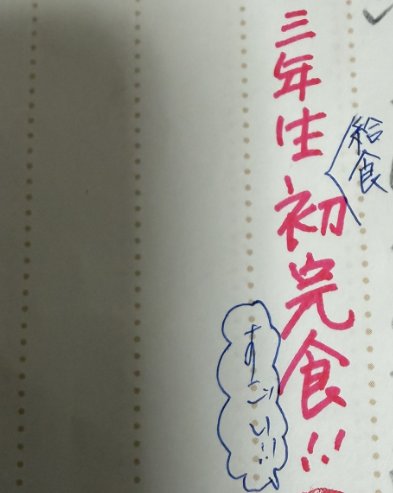 三年生初完食!!
給食
すごい!!